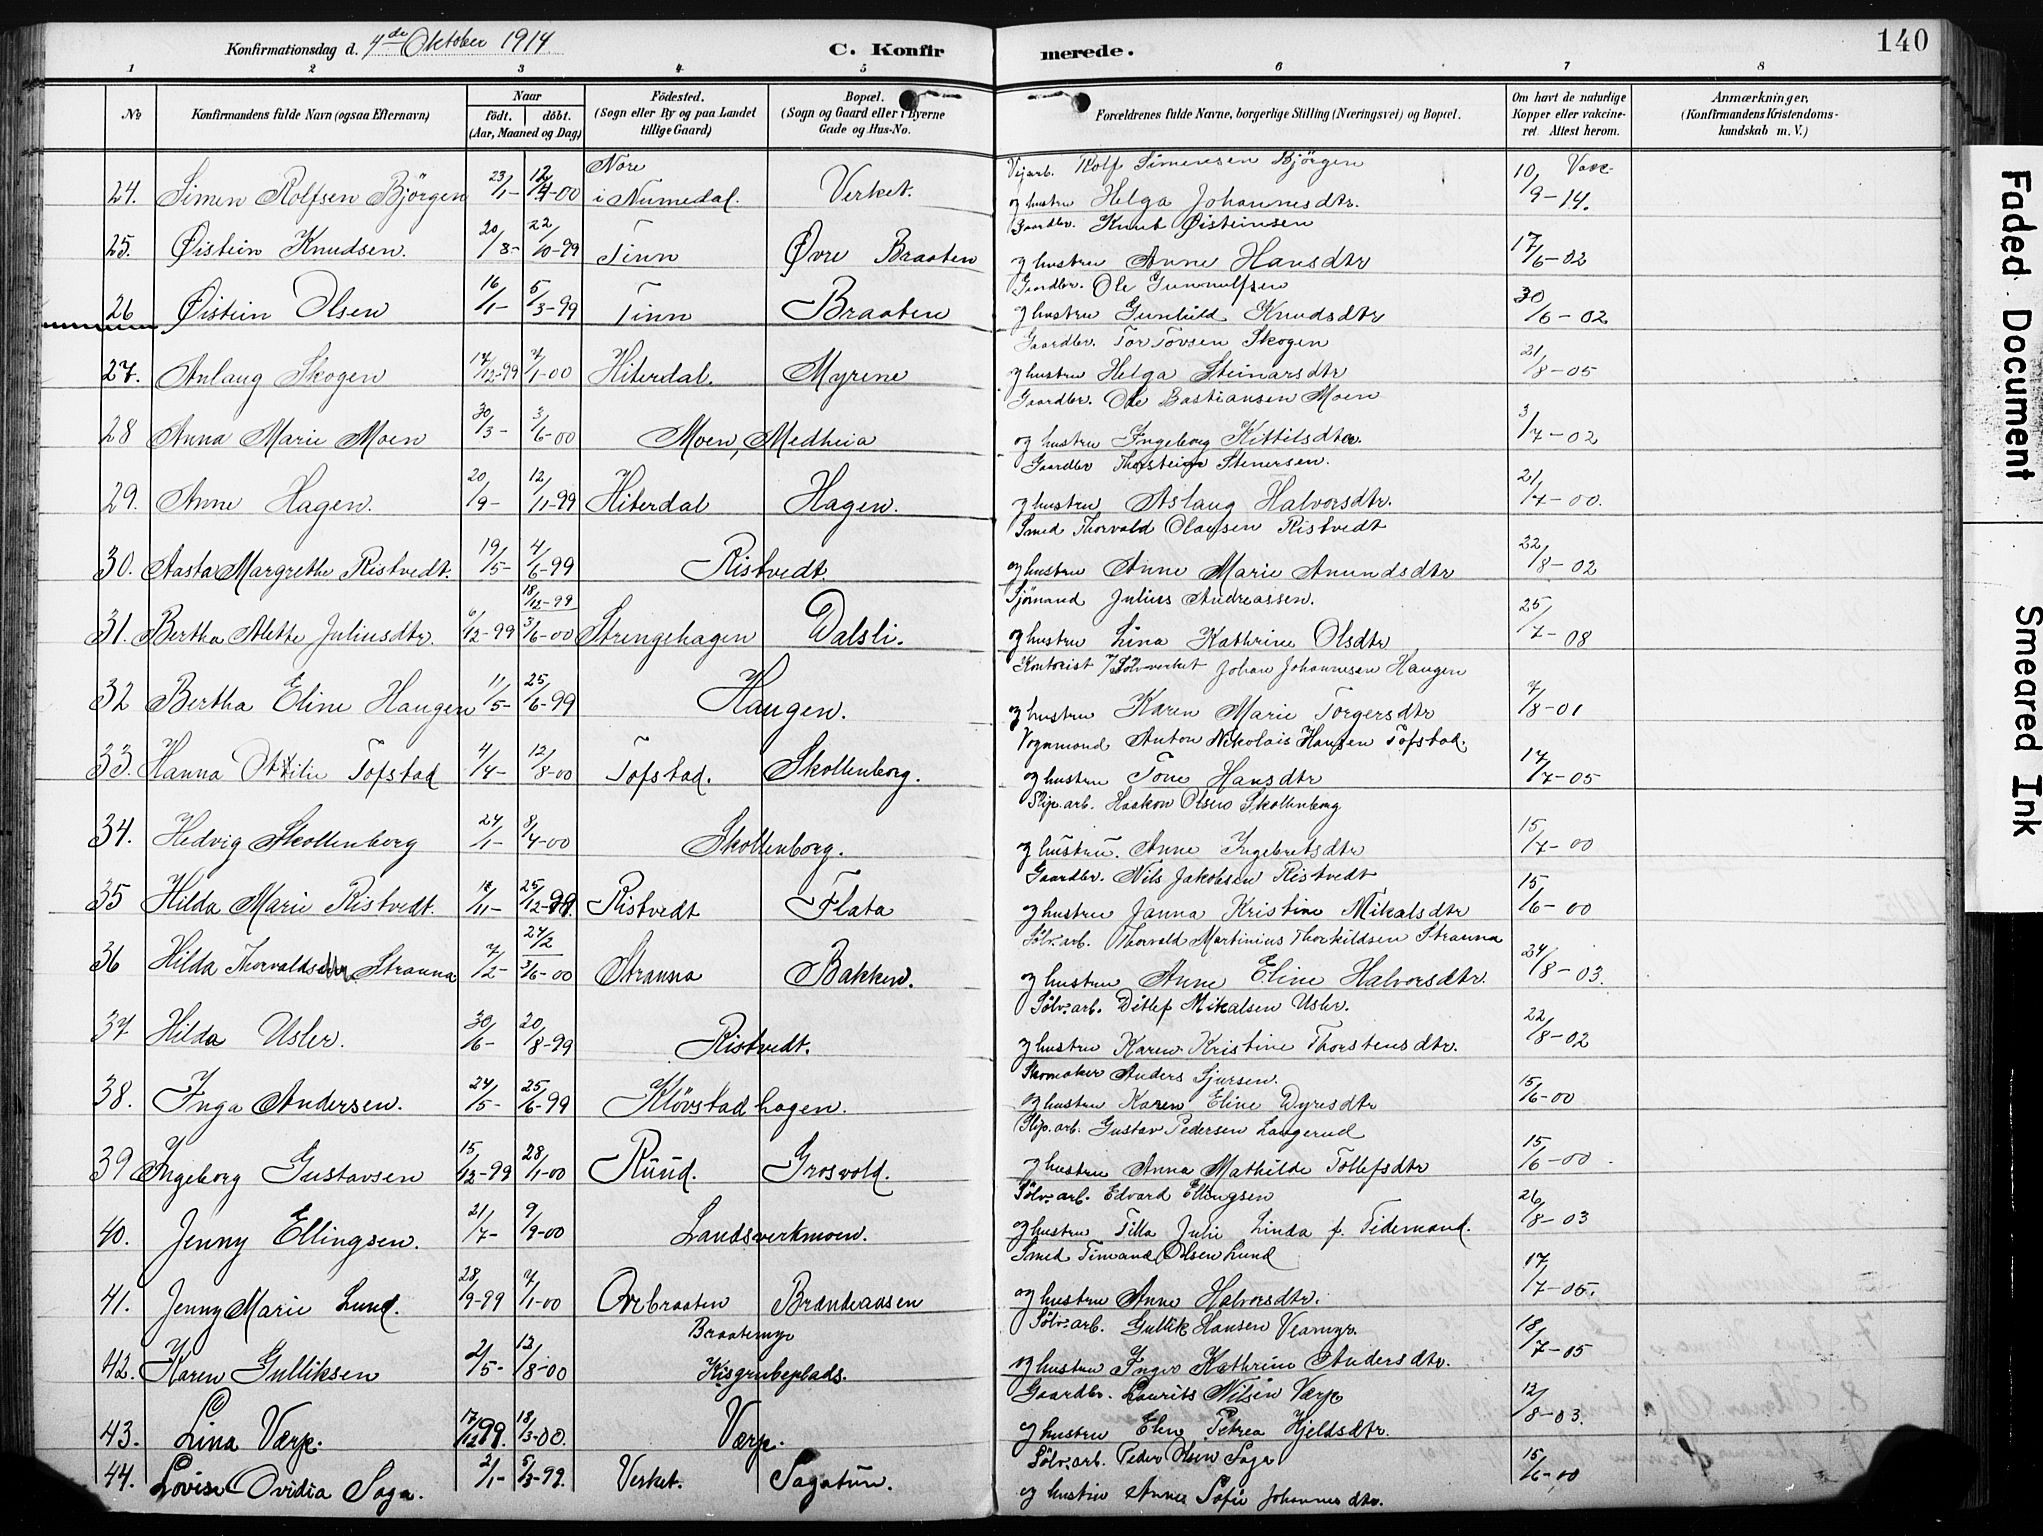 Konfirmationsdag d. 4de Oktober 1914
C. Konfirmerede.
140
1 2 3 4 5 6 7 8
No
Konfirmandens fulde Navn (ogsaa Efternavn)
Naar
födt. döbt.
(Aar, Maaned og Dag)
Födested.
(Sogn eller By og paa Landet tillige Gaard)
Bopæl.
(Sogn og Gaard eller i Byerne Gade og Hus-No.
Forældrenes fulde Navne, borgerlige Stilling (Næringsvei) og Bopæl.
Om havt de naturlige Kopper eller vaccineret. Attest herom.
Anmærkninger,
(Konfirmandens Kristendomskundskab m. V.)
24. Simen Rolfsen Björgen 23/1- 12/4-00 Nore i Numedal. Verket. Vejarb. Rolf Simensen Björgen og hustru Helga Johannesdtr. 10/9-14. Vacc.
25. Øistein Knudsen. 20/8- 22/10-99 Tinn Øvre Braaten Gaardbr. Knut Øisteinsen og hustru Anne Hansdtr 17/6-02
26 Øistein Olsen 16/1- 5/3-99 Tinn Braaten Gaardbr. Ole Gunnulfsen og hustru Gunhild Knudsdtr 30/6-02
27. Anlaug Skogen 17/12-99 7/1-00 Hiterdal. Myrene Gaardbr. Tor Tovsen Skogen og hustru Helga Steinarsdtr 21/8-05
28 Anna Marie Moen 30/3- 3/6-00 Moen, Medheia Gaardbr. Ole Bastiansen Moen og hustru Ingeborg Kittilsdtr. 3/7-02
29. Anne Hagen. 20/9- 12/11-99 Hiterdal Hagen. Gaardbr Thorstein Stenersen. og hustru Aslaug Halvorsdtr. 21/7-00.
30. Aasta Margrethe Ristvedt. 19/5- 4/6-99 Ristvedt. Smed Thorvald Olausen Ristvedt og hustru Anne Marie Amundsdtr 22/8-02
31. Bertha Alette Juliusdtr. 6/12-99 18/12-99 3/6-00 Strengehagen Dalsli. Sjömand Julius Andreassen. og hustru Lina Kathrine Olsdtr 25/7-08
32 Bertha Eline Haugen 11/5- 25/6-99 Haugen. Kontorist v/Sölvverket Johan Johannesen Haugen og hustru Karen Marie Torgersdtr 7/8-01
33. Hanna Ottilie Tofstad 4/4- 12/8-00 Tofstad. Skollenborg. Vognmand Anton Nikolais Hansen Tofstad. og hustru Tone Hansdtr 17/7-05
34. Hedvig Skollenborg 24/1- 8/4-00 Skollenborg. Slip.arb. Haakon Olsen Skollenborg og hustru. Anne Ingebretsdtr 15/7-00
35 Hilda Marie Ristvedt. 17/11- 25/12-99. Ristvedt Flata Gaardbr. Nils Jakobsen Ristvedt og hustru Janna Kristine Mikalsdtr 15/6-00
36 Hilda Thorvaldsdtr Stranna 7/2- 24/2 3/6-00 Stranna Bakken. Sölv.arb. Thorvald Martinius Thorkildsen Stranna og hustru Anne Eline Halvorsdtr. 24/8-03.
37. Hilda Usler. 30/6- 20/8-99 Ristvedt. Sölv.arb. Ditlef Mikalsen Usler. og hustru Karen Kristine Thorstensdtr. 22/8-02
38. Inga Andersen. 24/5- 25/6-99 Klövstadhagen. Skomaker Anders Sjursen. og hustru Karen Eline Dyresdtr 15/6-00
39 Ingeborg Gustavsen 15/12-99 28/1-00 Ruud. Grosvold. Slip.arb. Gustav Pedersen Langerud og hustru Anna Mathilde Tollefsdtr 15/6-00.
40. Jenny Ellingsen. 21/7- 9/9-00 Landsverkmoen. Sölv.arb. Edvard Ellingsen og hustru Tilla Julie Linda f. Tidemand. 26/8-03
41. Jenny Marie Lund. 28/9-99 7/1-00 Ovrebraaten Brændeaasen Smed Timand Olsen Lund og hustru Anne Halvorsdtr. 17/7-05.
42. Karen Gulliksen 2/5- 12/8-00 Braatemyr Kisgrubeplads. Sölv.arb. Gullik Hansen Veamyr. og hustru Inger Kathrine Andersdtr. 18/7-05
43. Lina Værp. 17/12 99. 18/3-00. Værp. Gaardbr. Laurits Nilsen Værp og hustru Elen Petrea Hjeldsdtr. 12/8-03.
44. Lovise Ovidia Saga. 2/1- 5/3-99. Verket. Sagatun. Sölv.arb. Peder Olsen Saga og hustru Anne Sofie Johannesdtr. 15/6-00
Faded Document
Smeared Ink